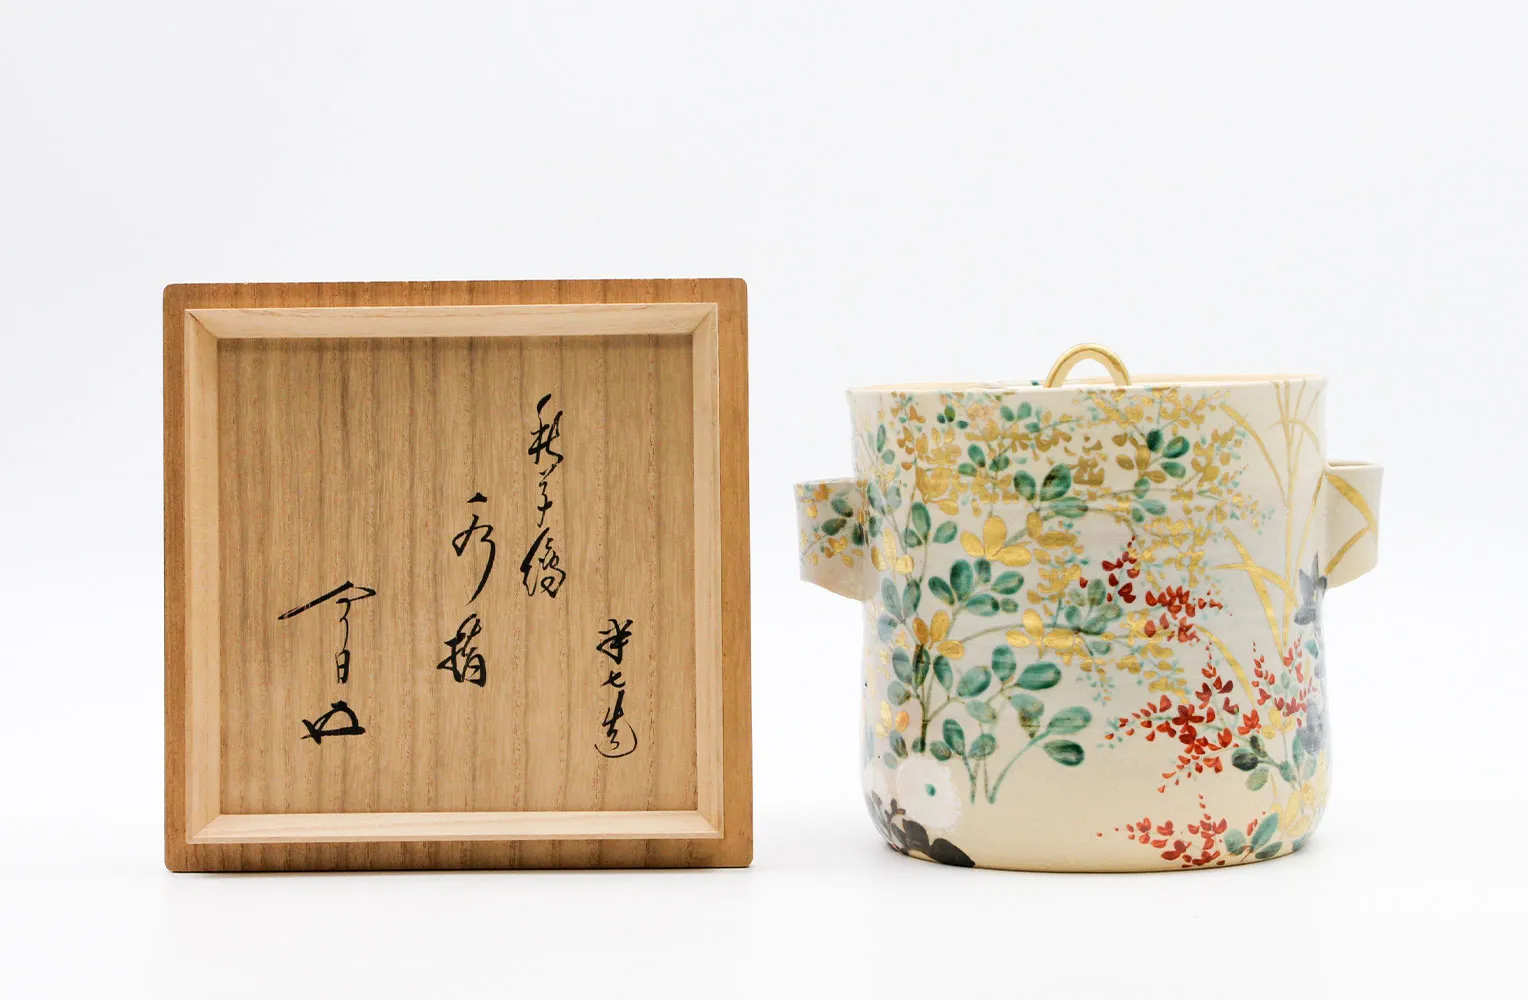 半七造
秋草絵
水指
今日